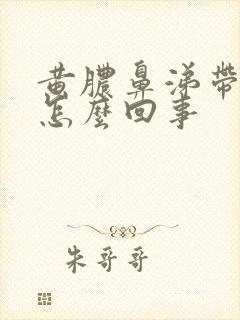 黄膿鼻涕帶
怎麼回事
朱哥哥